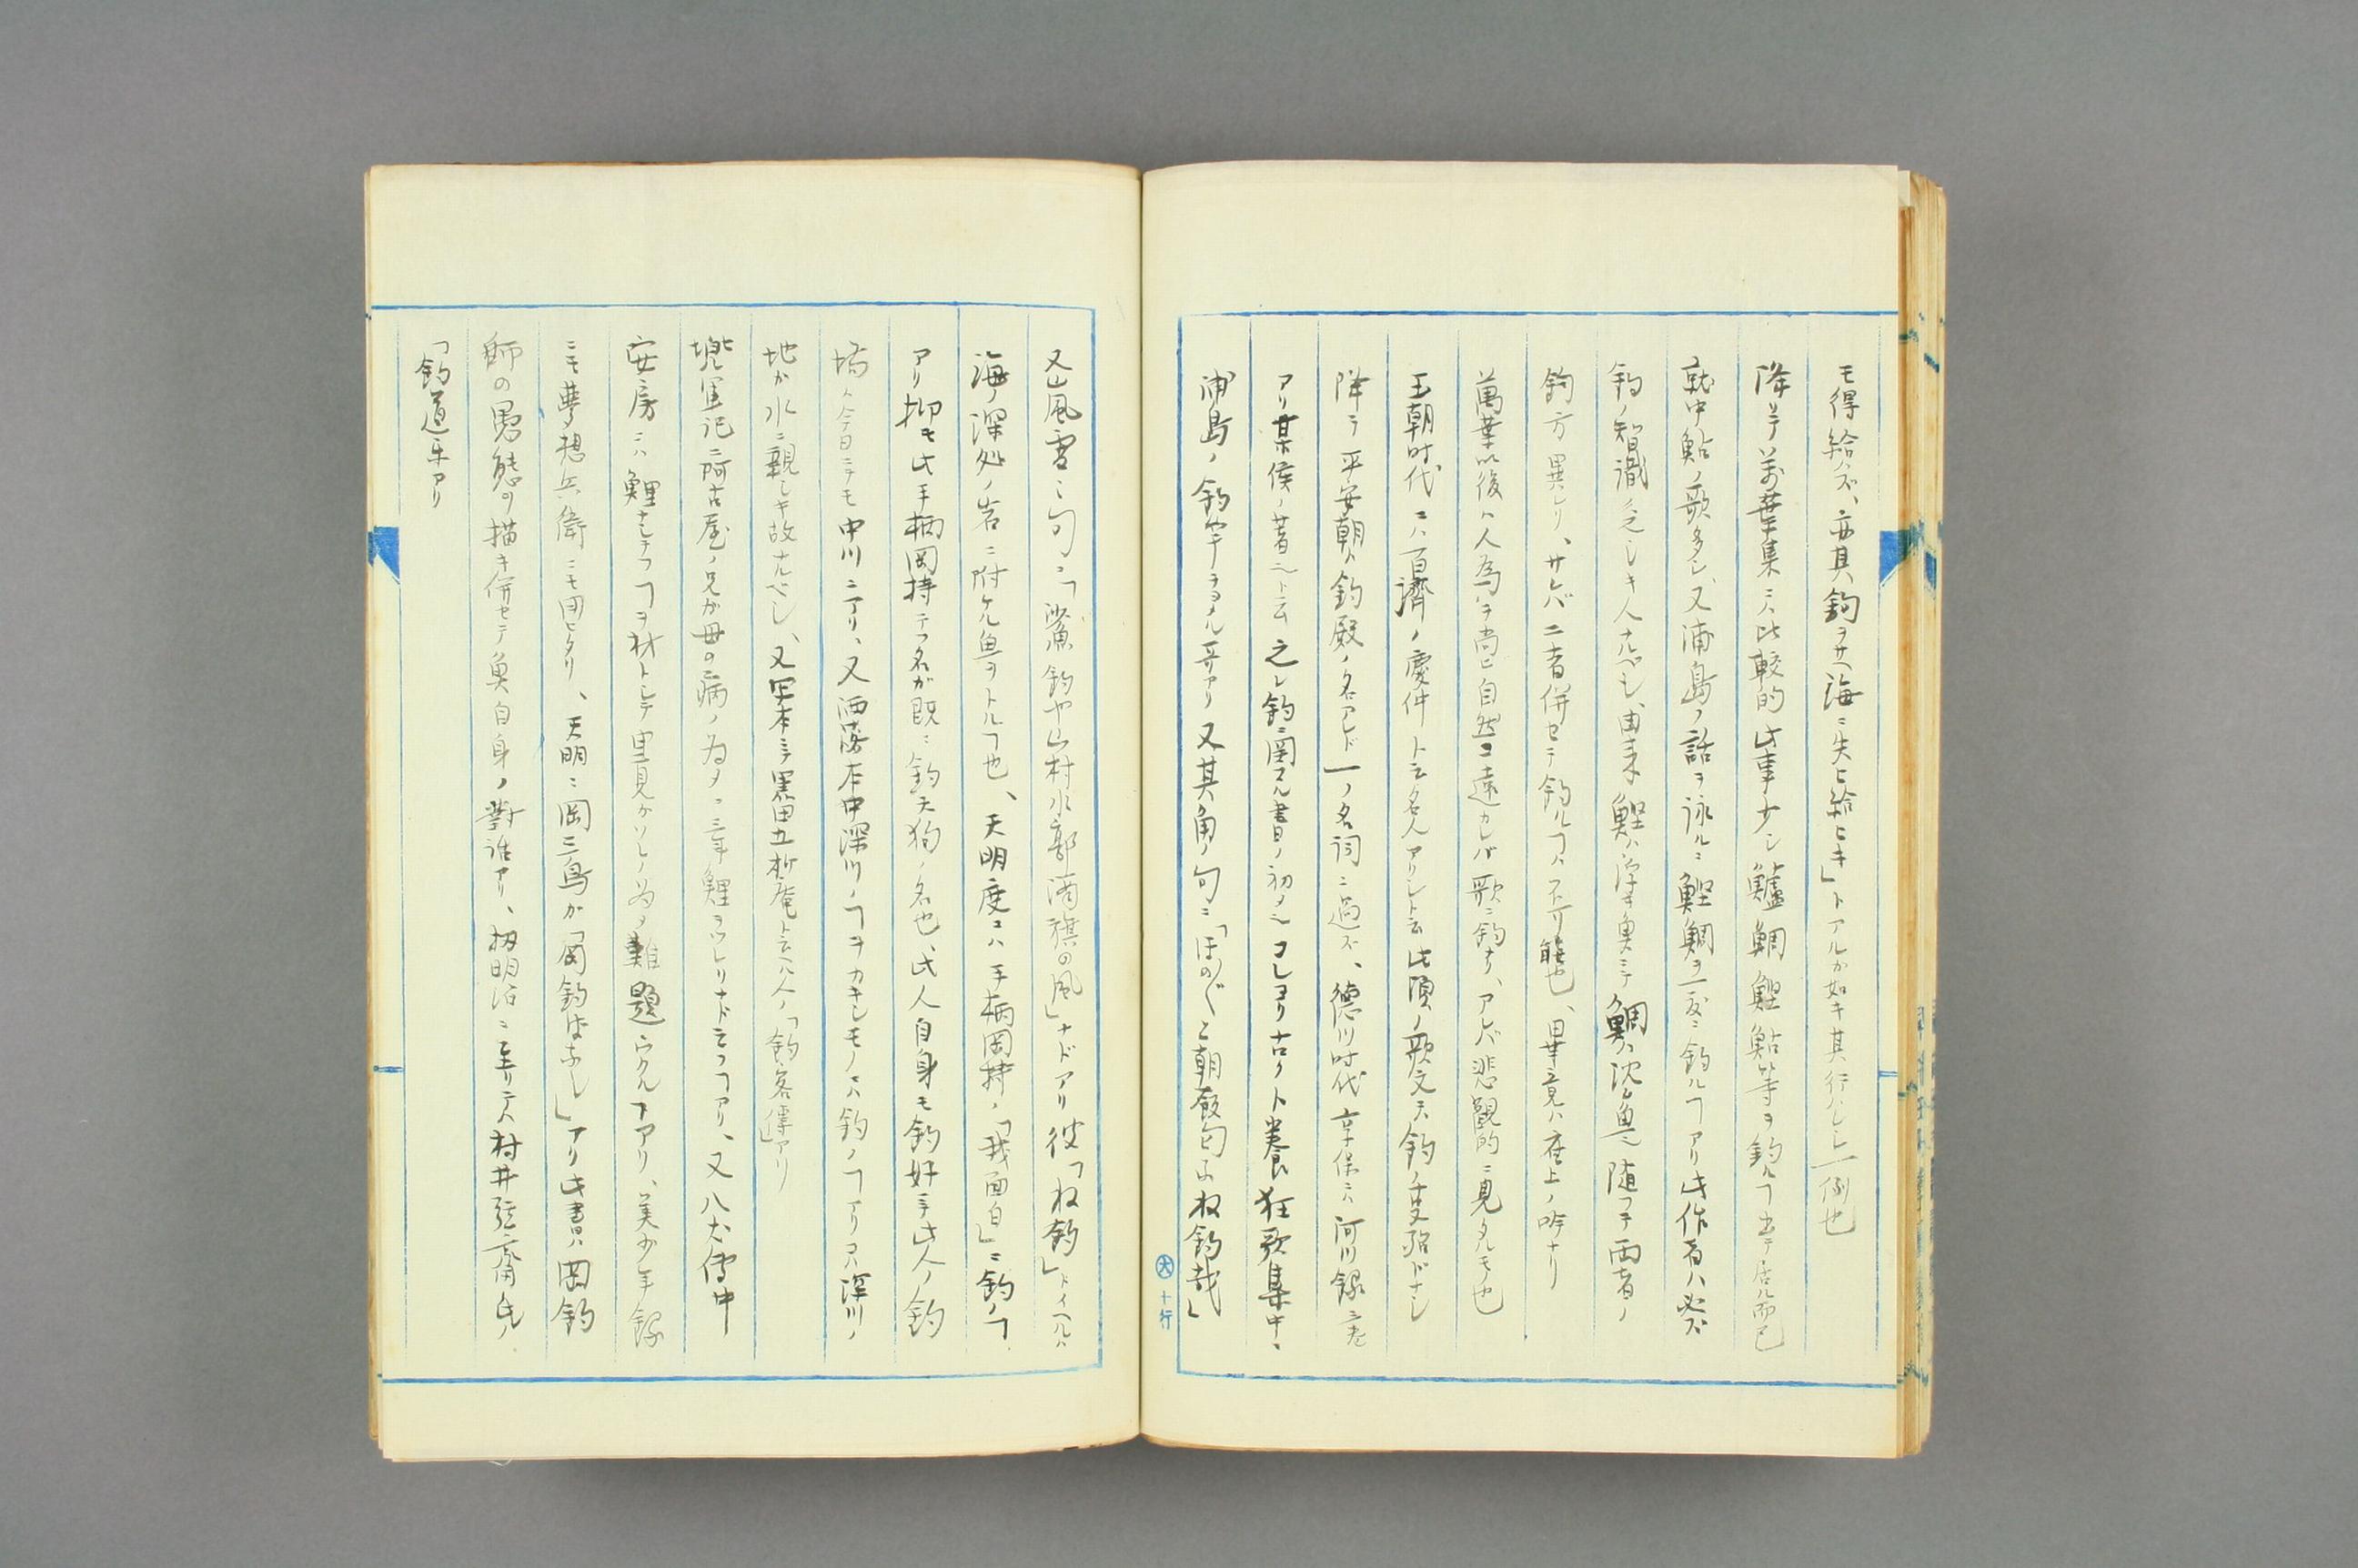 モ得給ハズ、亦其鉤ヲサヘ海ニ失ヒ給ヒキ」トアルカ如キ其行ハレシ一例也
降リテ万葉集ニハ比較的此事少シ鱸鯛鰹鮎等ヲ釣ルヿ出テ居ル而已
就中鮎ノ歌多シ、又浦島ノ話ヲ詠ルニ鰹鯛ヲ一度ニ釣ルヿアリ此作者ハ必ズ
釣ノ智識ノ乏シキ人ナルベシ、由来鰹ハ浮キ魚ニテ鯛ハ沈ム魚也随ツテ両者ノ
釣方異レリ、サレバ二者併セテ釣ルヿハ不可能也、畢竟ハ座上ノ吟ナリ
萬葉以後ハ人為ヲ尚ビ自然ニ遠カレバ歌ニ釣ナリ、アレバ悲観的ニ見タルモノ也
王朝时代ニハ百濟ノ慶仲ト云名人アリシト云此頃ノ歌文ニハ釣ノ事殆ドナシ
降テ平安朝ハ釣殿ノ名アレド一ノ名詞ニ過ズ、徳川时代享保ニハ河川録ニ巻
アリ某侯ノ著也ト云之レ釣ニ関スル書ノ初メ也コレヨリ古クト養狂歌集中ニ
浦島ノ釣竿ヲヨメル哥アリ又其角ノ句ニ「ほの〲と朝飯匂ふ根釣哉」
又嵐雪ノ句ニ「鯊釣や山村水郭酒旗の風」ナドアリ彼「根釣」トイヘルハ
海ノ深処ノ岩ニ附ケル魚ヲトルヿ也、天明度ニハ手柄岡持ノ「我面白」ニ釣ノヿ
アリ抑モ此手柄岡持テフ名が既ニ釣天狗ノ名也、此人自身モ釣好ニテ此人ノ釣
場ハ今日ニテモ中川ニアリ、又洒落本中深川ノヿヲカキシモノニハ釣ノヿアリコハ深川ノ
地カ水ニ親シキ故ナルベシ、又写本ニテ黒田五柳庵ト云ヘル人ノ「釣客傳」アリ
兜軍記ニ阿古屋ノ兄が母の病ノ為メニ寒鯉ヲツレリナド云フヿアリ、又八犬傳中
安房ニハ鯉ナシテフヿヲ材トシテ里見がソレノ為メ難題ウクルヿアリ、美少年録
ニモ夢想兵衛ニモ用ヒタリ、天明ニ岡三鳥が「岡釣はなし」アリ此書ハ岡釣
師の愚態ヲ描キ併セテ魚自身ノ對話アリ、扨明治ニ至リテハ村井弦斎氏ノ
「釣道樂アリ
大 十行